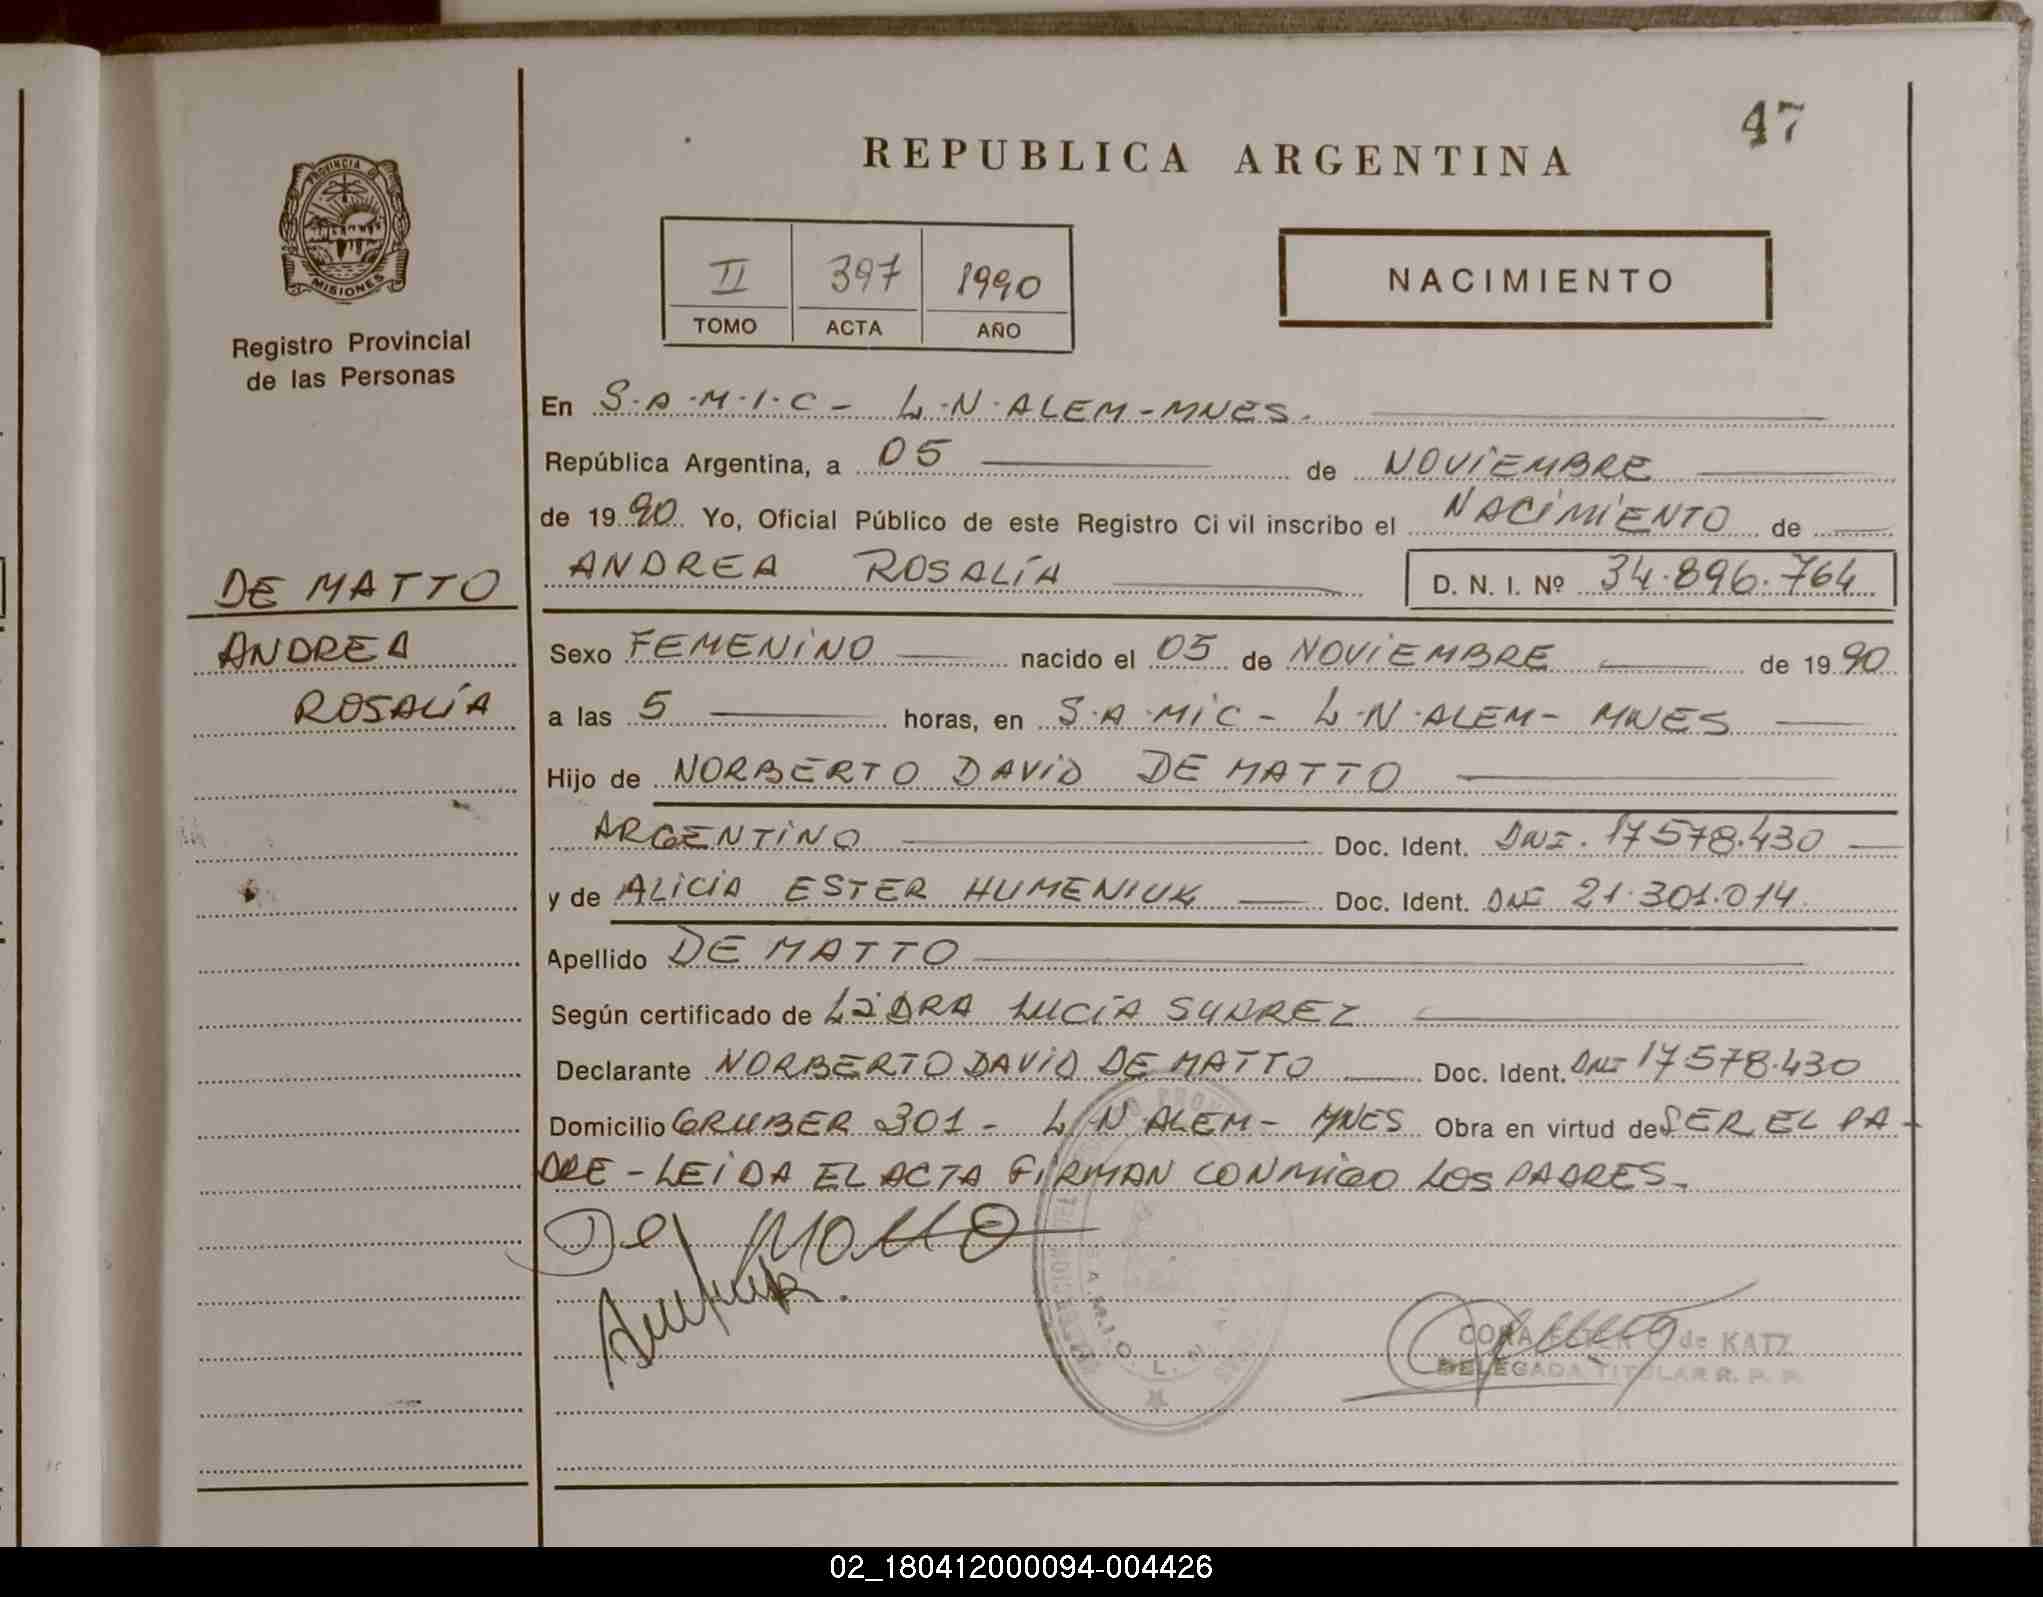 47
REPUBLICA ARGENTINA
PROVINCIA DE
MISIONES
Registro Provincial
de las Personas
II 397 1990
TOMO ACTA AÑO
NACIMIENTO
En S.A.M.I.C - L.N.ALEM-MNES.
República Argentina, a 05 de NOVIEMBRE
de 1990 Yo, Oficial Público de este Registro Civil inscribo el NACIMIENTO de
ANDREA ROSALÍA D. N. I. Nº 34.896.764
DE MATTO
ANDREA
ROSALÍA
Sexo FEMENINO nacido el 05 de NOVIEMBRE de 1990
a las 5 horas, en S.A.MIC - L.N.ALEM - MNES
Hijo de NORBERTO DAVID DE MATTO
ARGENTINO Doc. Ident. DNI. 17578.430
y de ALICIA ESTER HUMENIUK Doc. Ident. DNI 21.301.014.
Apellido DE MATTO
Según certificado de LUCÍA SUAREZ
Declarante NORBERTO DAVID DE MATTO Doc. Ident. DNI 17578.430
Domicilio GRUBER 301 - L.N ALEM - MNES Obra en virtud de SER EL PA-
DRE - LEIDA EL ACTA FIRMAN CONMIGO LOS PADRES.
De Matto
S.A.M.I.C. L. N.
CORA ESTER de KATZ
DELEGADA TITULAR R. P. P.
02_180412000094-004426